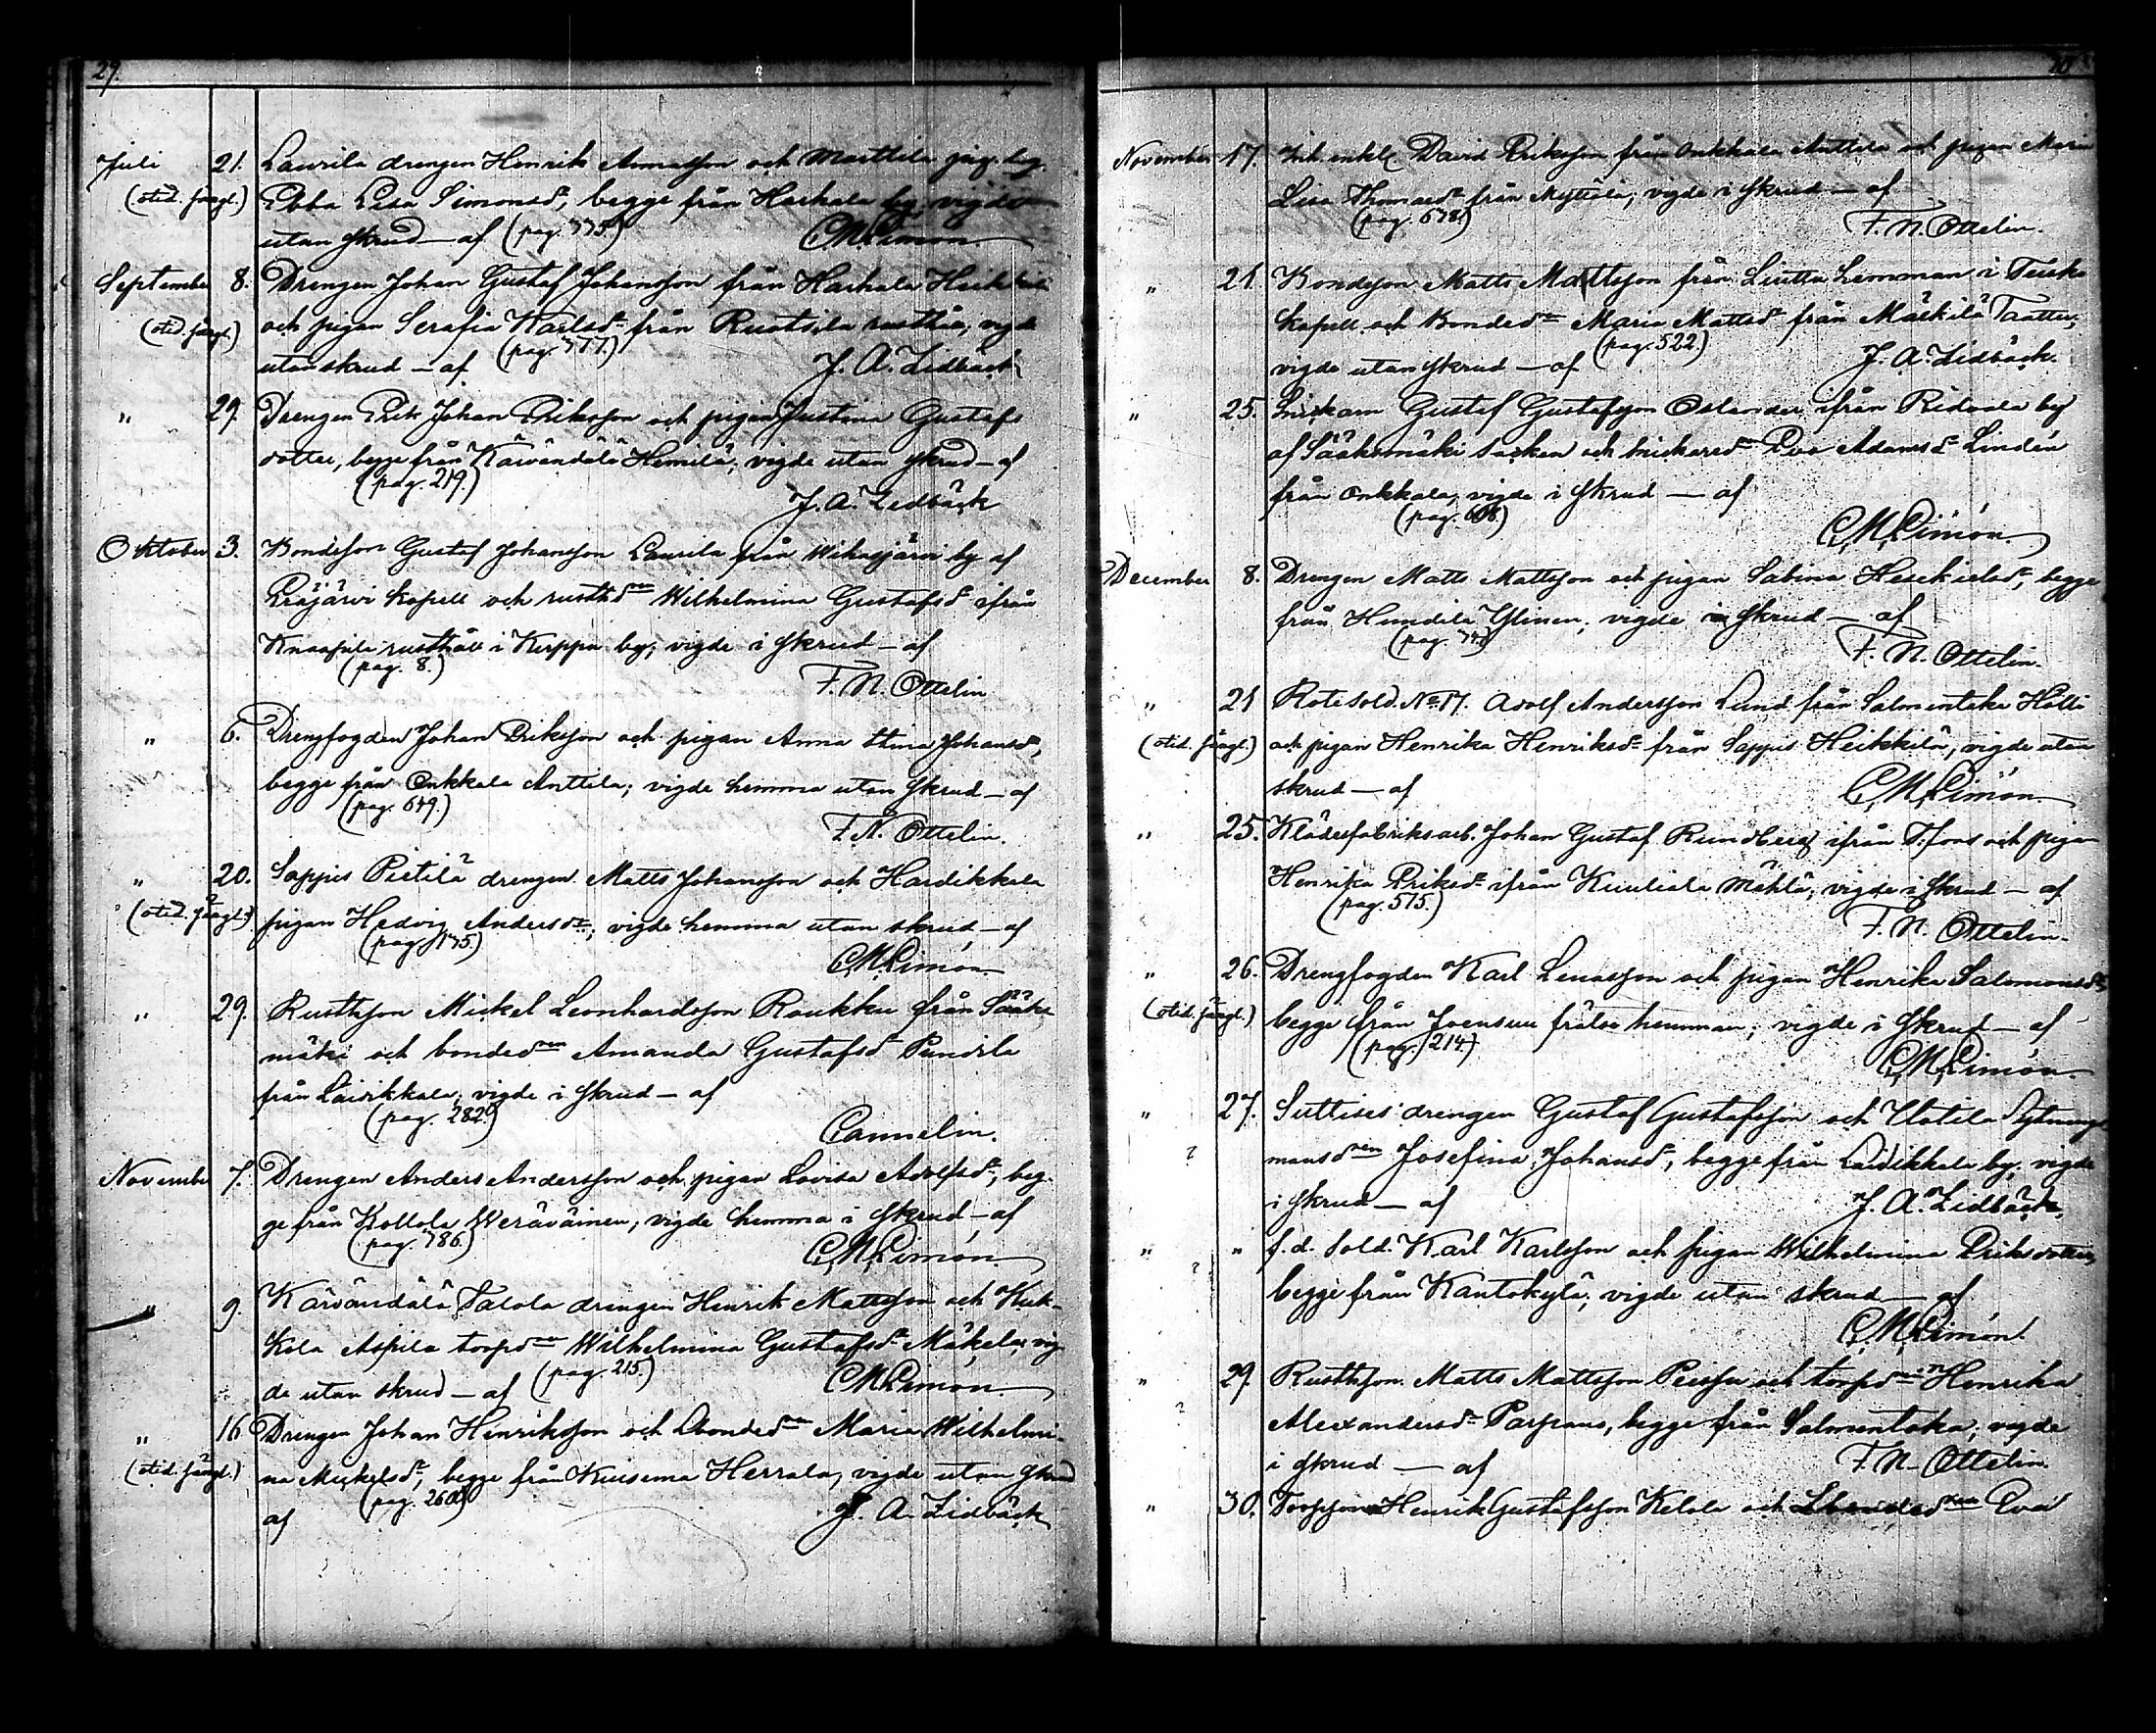 29.
Juli 21. Laurila drengen Henrik Annasson och Marttila pig. leg.
(otid. jängl.) Ebba Lisa Simonsdr, begge från Harhala by, vigde
utan skrud — af (pag. 775) C. M. Limón.
September 8. Drengen Johan Gustaf Johansson från Harhala Heikkilä
(otid. jängl.) och pigan Serafia Karlsdr från Ruotsila rusthåll, vigde
utan skrud — af (pag. 777.) J. A. Lidbäck
" 29. Drengen Erik Johan Eriksson och pigan Justina Gustafs
dotter, begge från Käivändälä Hemilä; vigde utan skrud — af
(pag. 219.)
J. A. Lidbäck
Oktober 3. Bondeson Gustaf Johansson Laurila från Wihasjärvi by af
Eräjärvi kapell och rustdrn Wilhelmina Gustafsdr ifrån
Knaapila rusthåll i Kerppu by; vigde i skrud — af
(pag. 8.)
F. N. Ottelin
" 6. Drengfogden Johan Eriksson och pigan Anna Stina Johansdr,
begge från Onkkala Anttila; vigde hemma utan skrud — af
(pag. 649.)
F. N. Ottelin.
" 20. Sappis Pietilä drengen Matts Johansson och Hardikkala
(otid. jängl.) pigan Hedvig Andersdr; vigde hemma utan skrud — af
(pag. 175)
C. M. Limón
" 29. Rusttson Mickel Leonhardsson Roukku från Sääks-
mäki och bondedrn Amanda Gustafsdr Pundila
från Laivikkala; vigde i skrud — af
(pag. 282)
Cannelin.
November 7. Drengen Anders Andersson och pigan Lovisa Adolfsdr, beg-
ge från Kollola Werävainen, vigde hemma i skrud — af
(pag. 786.) C. M. Limón.
" 9. Kärvändälä Talola drengen Henrik Mattsson och Kuk-
kola Aspila torpdrn Wilhelmina Gustafsdr Mäkelä, vig-
de utan skrud — af (pag. 215.) C. M. Limón.
" 16 Drengen Johan Henriksson och bondedrn Maria Wilhelmi-
(otid. jängl.) na Mickelsdr, begge från Kuisema Herrala, vigde utan skrud
af (pag. 260) J. A. Lidbäck
November 17. Inh. enkl. David Eriksson från Onkkala Anttila och pigan Maria
Lisa Thomasdr från Myttälä; vigde i skrud — af
(pag. 678) F. N. Ottelin.
" 21. Bondeson Matts Mattsson från Liutta hemman i Teisko
kapell och Bondedr Maria Mattsdr från Märkilä Taatter;
(pag. 522.)
vigde utan skrud — af J. A. Lidbäck.
" 25. Snickarn Gustaf Gustafsson Oslander ifrån Ridvala by
af Sääksmäki socken och snickaredr Eva Adamsdr Lindén
från Onkkala; vigde i skrud — af
(pag. 606.)
C. M. Limón.
December 8. Drengen Matts Mattsson och pigan Sabina Hesekielsdr, begge
från Humdila Ylinen; vigde i skrud — af
(pag. 74) F. N. Ottelin.
" 21 Rotesold. No 17. Adolf Andersson Lund från Salmentaka Hölli
(otid. jängl.) och pigan Henrika Henriksdr från Sappis Heikkilä, vigde utan
skrud — af C. M. Limón.
" 25. Klädesfabriksarb. Johan Gustaf Rundberg ifrån T:fors och pigan
Henrika Eriksdr ifrån Kuuliala Mähla; vigde i skrud — af
(pag. 575.)
F. N. Ottelin.
" 26. Drengfogden Karl Lenasson och pigan Henrika Salomonsdr
(otid. jängl.) begge från Joensuu frälse hemman; vigde i skrud — af
(pag. 214.) C. M. Limón.
" 27. Suttises drengen Gustaf Gustafsson och Utotila Sytnings-
? mansdrn Josefina Johansdr, begge från Laivikkala by, vigde
i skrud — af J. A. Lidbäck.
" " f. d. Sold. Karl Karlsson och pigan Wilhelmina Eriksdotter,
? begge från Kantokylä; vigde utan skrud — af
C. M. Limón.
" 29. Rusttson Matts Mattsson Peissu och torpdrn Henrika
? Alexandersdr Parpans, begge från Salmentaka; vigde
i skrud — af F. N. Ottelin
" 30. Torpson Henrik Gustafsson Kelola och bondedrn Eva